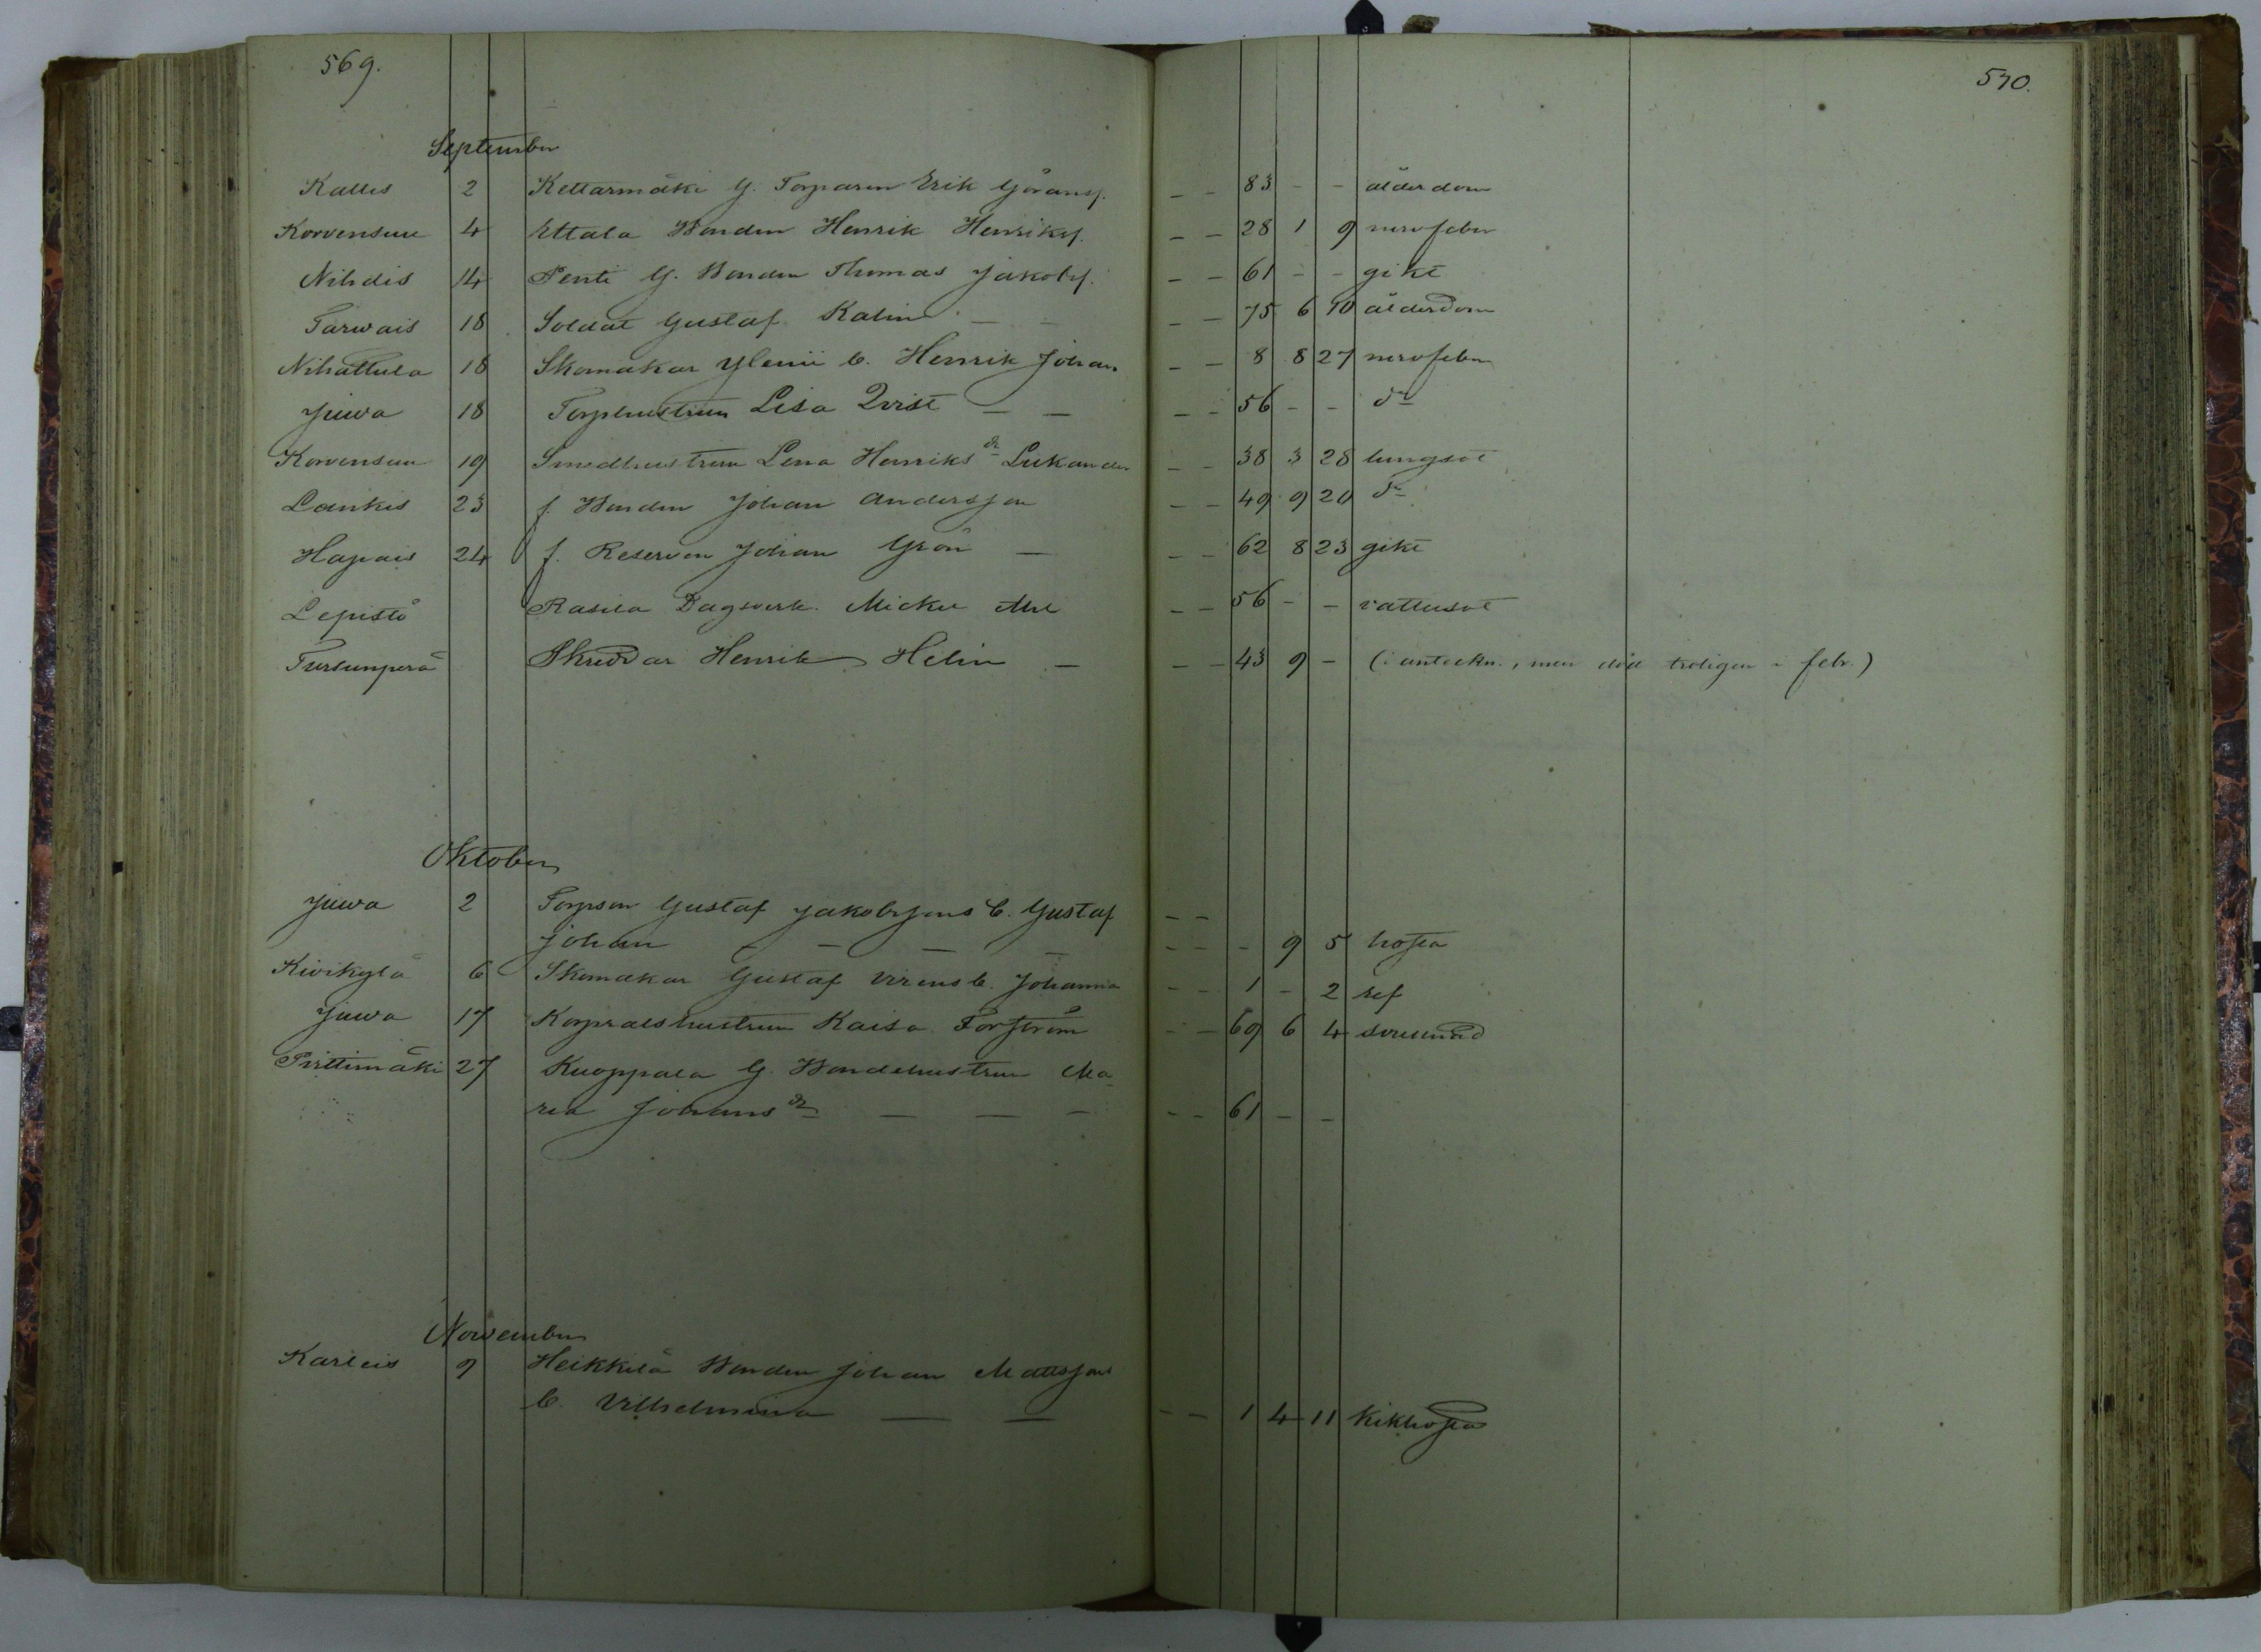 569.
570.
September
Kallis 2 Kettarmäki G. Torparen Erik Göransf. — — 83 - - ålderdom
Korvensuu 4 Ettala Bonden Henrik Henriksf. — — 28 1 9 nervfeber
Nihdis 14 Penti G. Bonden Thomas Jakobsf. — — 61 - - gikt
Tarwais 18 Soldat Gustaf Kalin — — — — 75 6 10 ålderdom
Nihattula 18 Skomakar Ylenii b. Henrik Johan — — 8 8 27 nervfeber
Juwa 18 Torphustrun Lisa Qvist — — — — 56 - - do
Korvensuu 19 Smedhustrun Lena Henriksdr Lukander — — 38 3 28 lungsot
Laukis 23 f. Bonden Johan Andersson — — 49 9 20 do
Hapais 24 f. Reserven Johan Grön — — — 62 8 23 gikt
Lepistö Rasila Dagsverk. Mickel — — 56 - - vattusot
Tursunperä Skreddar Henrik Helin — — — 43 9 - (i anteckn., men död troligen i febr.)
Oktober
Juwa 2 Torpson Gustaf Jakobssons b. Gustaf — —
Johan — — — — — — - 9 5 hosta
Kivikylä 6 Skomakar Gustaf Virens b. Johanna — — 1 - 2 ref
Juwa 17 Korpralshustrun Kaisa Forström — — 69 6 4
Pirttimäki 27 Kuoppala G. Bondehustrun Ma-
ria Johansdr — — — — — 61 - -
November
Karleis 9 Heikkilä Bonden Johan Mattssons
b. Vilhelmina — — — — 1 4 11 kikhosta